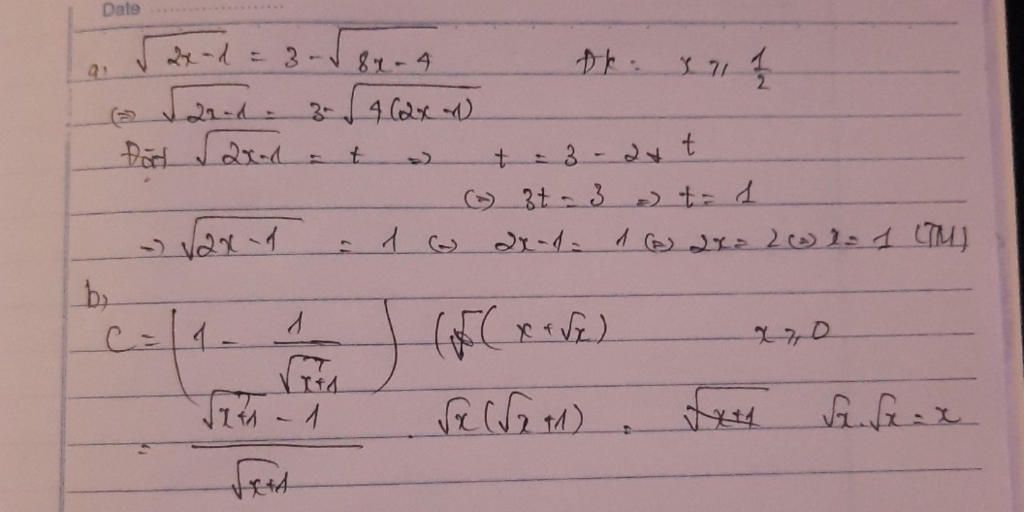 Date
a, √(2x-1) = 3 - √(8x-4) ĐK: x ≥ 1/2
(=) √(2x-1) = 3 - √(4(2x-1))
Đặt √(2x-1) = t => t = 3 - 2 t
(=) 3t = 3 => t = 1
=> √(2x-1) = 1 (=) 2x-1 = 1 (=) 2x = 2 (=) x = 1 (TM)
b,
C = (1 - 1/(√x+1)) (x+√x) x ≥ 0
= (√x+1 - 1)/(√x+1) . √x(√x+1) = √x.√x = x